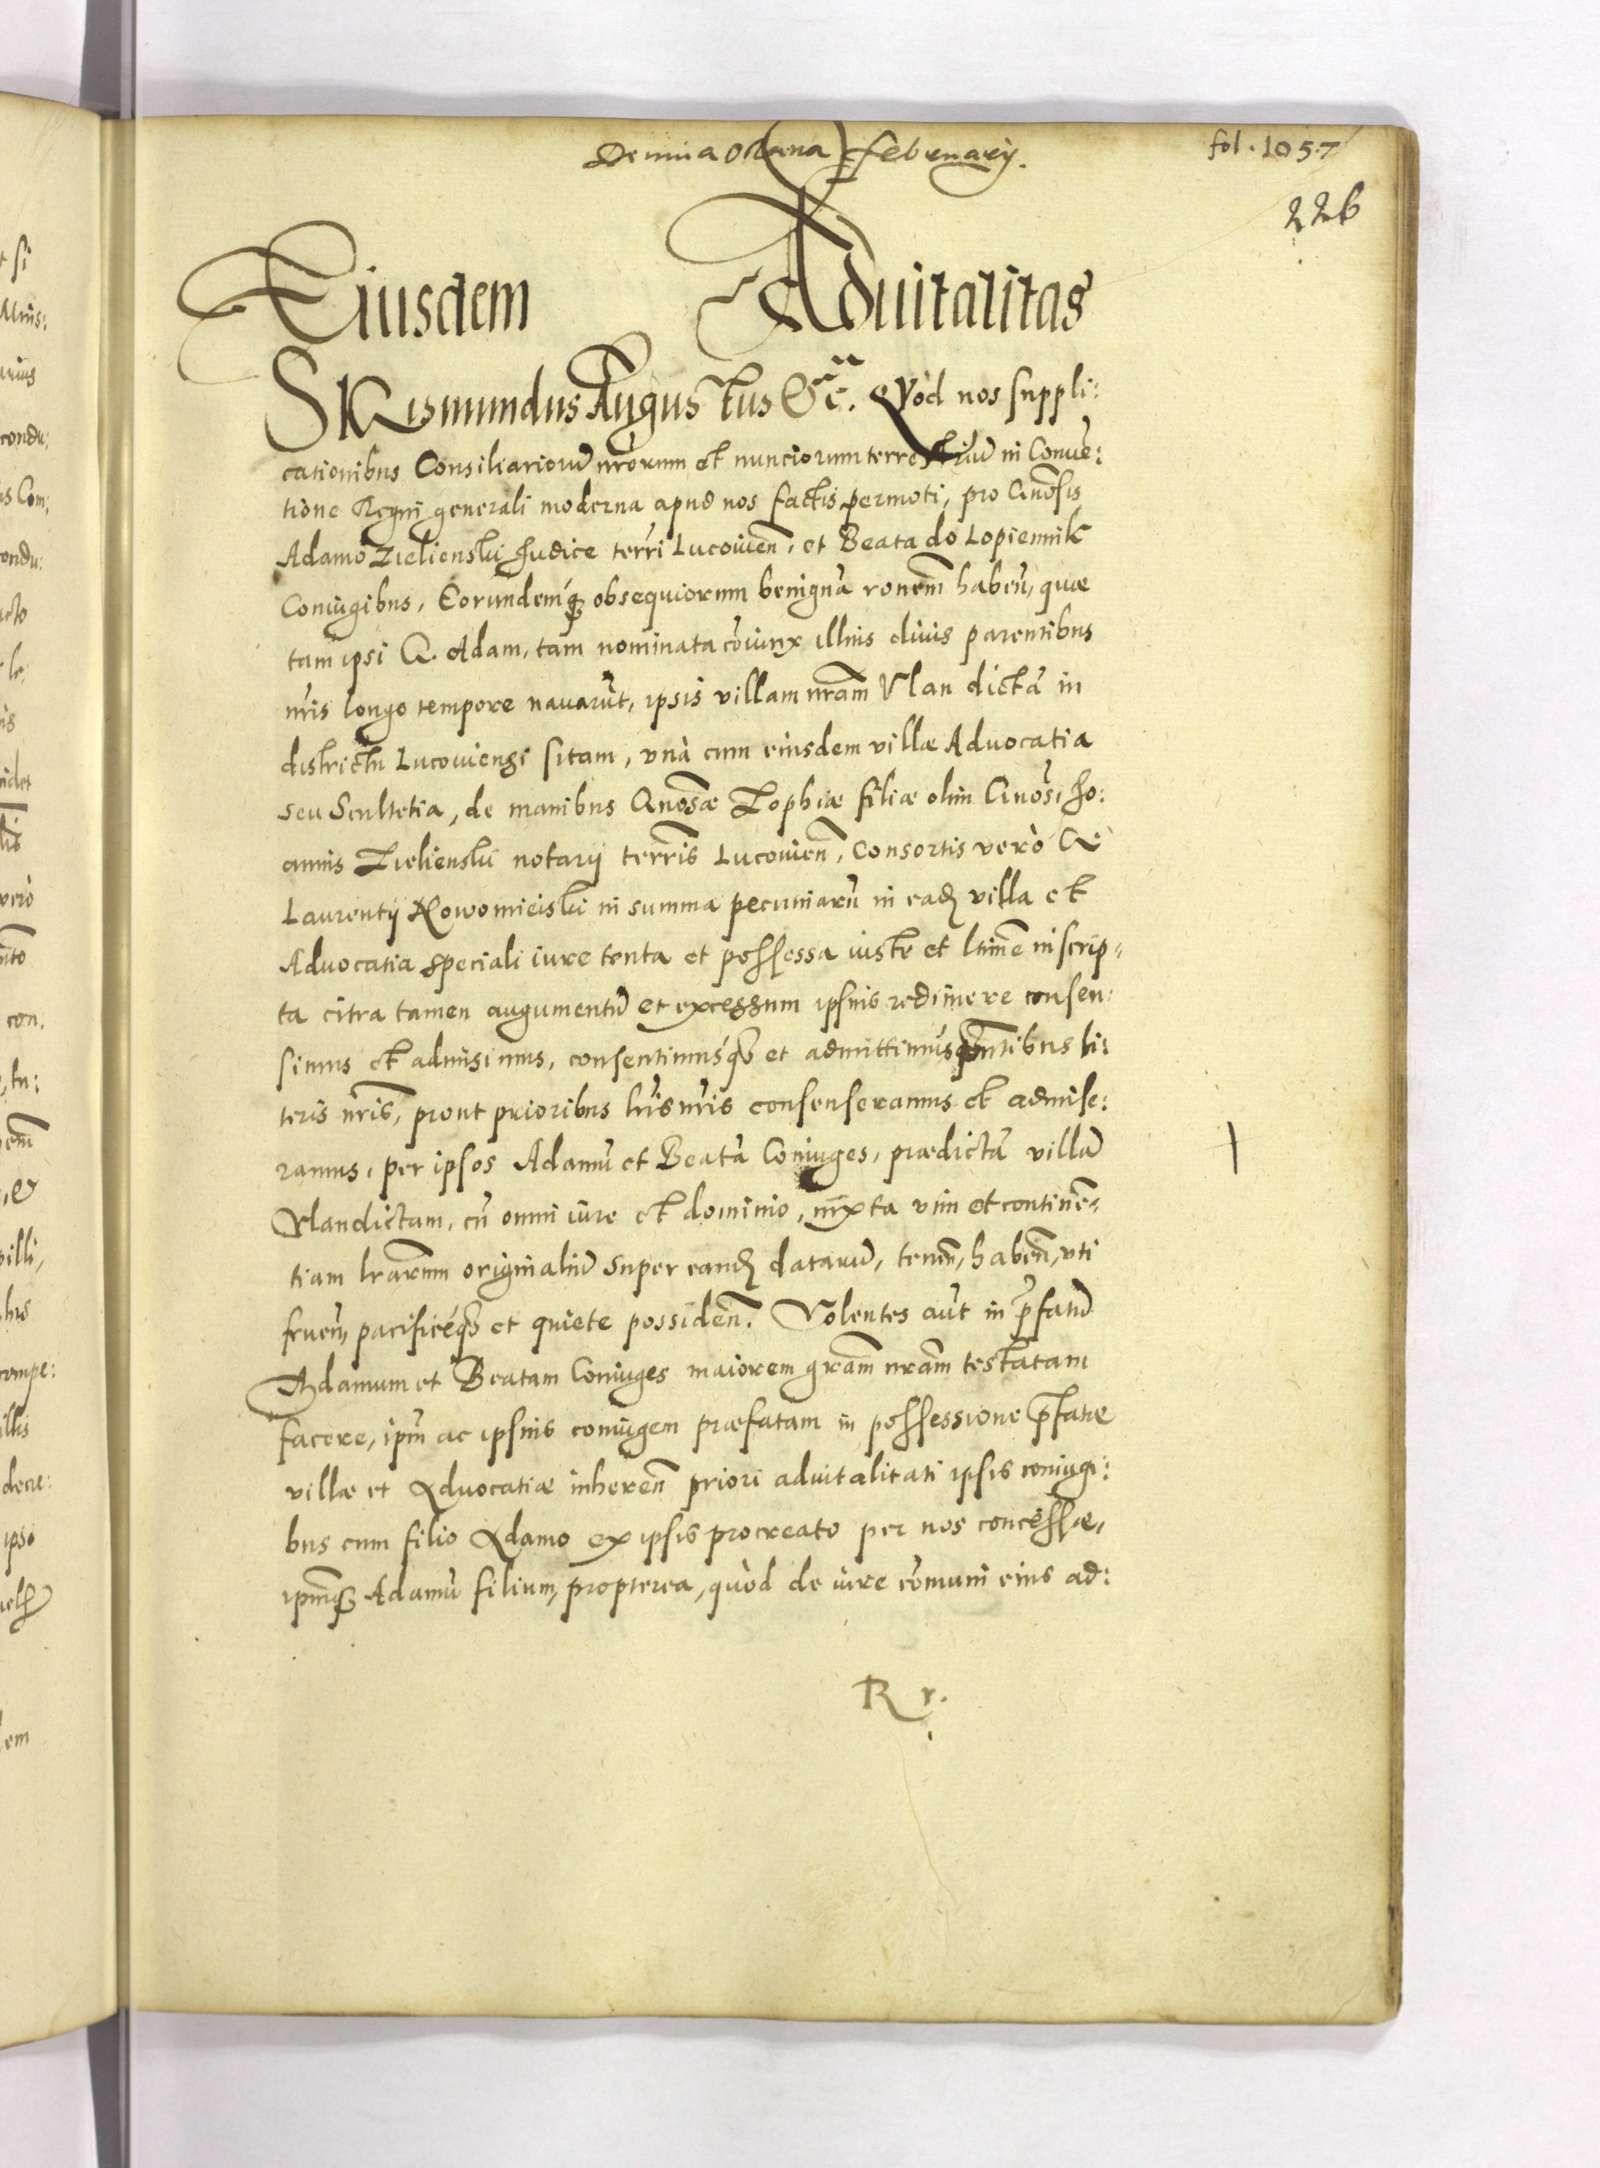 Decima octava february.
fol. 1057
226
Eiusdem Aduitalitas
SIgismundus Augustus &cᵃ. QVòd nos suppli:
cationibus Consiliariorū nr̄orum et nunciorum terrestriū in Conuē:
tione Regni generali moderna apud nos factis permoti, pro Gn̄osis
Adamo Zielienski Judice terrī Lucouien̄, et Beata do Lopiennik
Coniugibus, Eorundemq́ꝫ obsequiorum benignā ronem̄ haben̄, quæ
tam ipsi G. Adam, tam nominata cōiunx illius diuis parentibus
nr̄is longo tempore nauarūt, ipsis villam nr̄am Vlan dictā in
districtu Lucouiensi sitam, vnà cum eiusdem villæ Aduocatia
seu Scultetia, de manibus Gn̄osæ Zophiæ filiæ olim Gn̄osi Jo:
annis Zielienski notarij terrīs Lucouien̄, Consortis verò G
Laurentij Nowomieiski in summa pecuniarū in eadꝫ villa et
Aduocatia speciali iure tenta et possessa iuste et ltimē inscrip-
ta citra tamen augumentū et excessum ipsius redimere consen:
simus et admisimus, consentimusq́ꝫ et admittimus pn̄tibus li:
teris nr̄is, prout prioribus lr̄is nr̄is consenseramus et admise:
ramus, per ipsos Adamū et Beatā Coniuges, prædictā villā
Vlan dictam, cū omni iure et dominio, iuxta vim et continē-
tiam lrarum̄ originaliū super eandꝫ datarū, tenen̄, haben̄, vti
fruen̄, pacificéqꝫ et quiete possiden̄. Volentes aūt in p̄fatū
Adamum et Beatam Coniuges maiorem gram̄ nram̄ testatam
facere, ipm̄ ac ipsius coniugem præfatam in possessione p̄fatæ
villæ et Aduocatiæ inheren̄ priori aduitalitati ipsis coniugi:
bus cum filio Adamo ex ipsis procreato per nos concessæ,
ipm̄qꝫ Adamū filium, propterea, quòd de iure cōmuni eius ad:
R r.